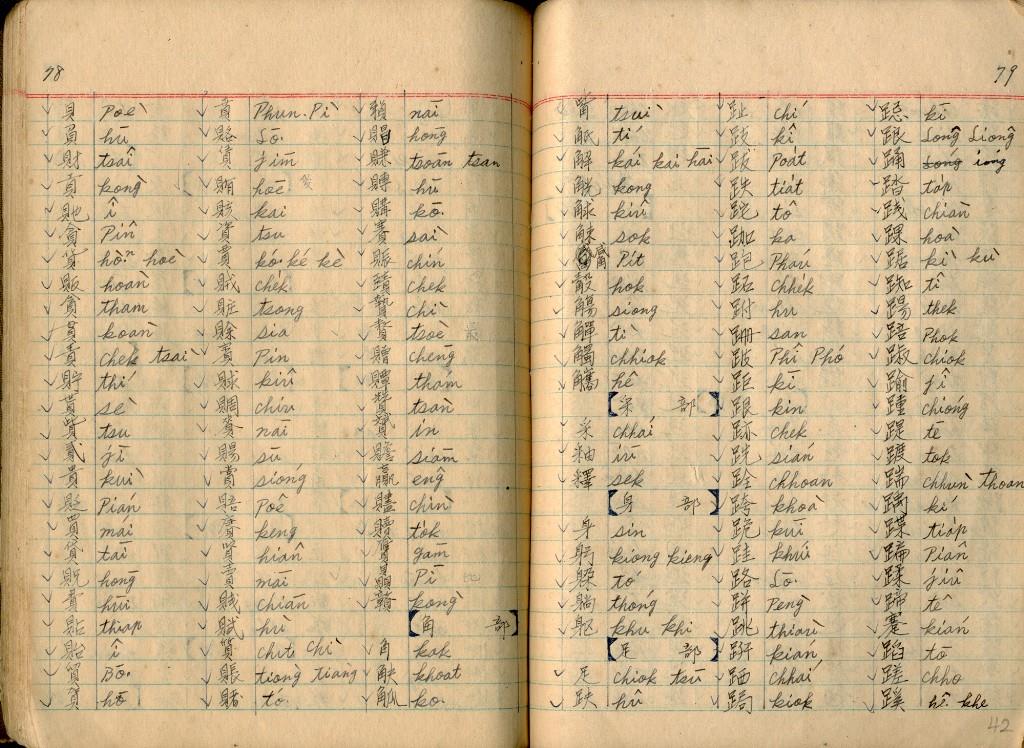 78
貝 Poè
負 hū
財 tsâi
貢 kòng
貤 î
貧 Pîn
貨 hò.ⁿ hoè
販 hoàn
貪 tham
貫 koàn
責 chek tsai
貯 thí
貰 sè
貲 tsu
貳 jī
貴 kuì
貶 Pián
買 mái
貸 tai
貺 hóng
賁 hùi
貼 thiap
貽 î
貿 Bō.
賀 hō
賁 Phun. Pì
賂 Lō.
賃 jīm
賄 hoē
賅 kai
資 tsu
賈 kó. ké kè
賊 chék
賍 tsong
賒 sia
賓 Pin
賕 kiû
賙 chiu
賚 nāi
賜 sù
賞 sióng
賠 Poê
賡 keng
賢 hiân
賣 māi
賤 chiān
賦 hù
質 chit chì
賬 tiòng tiàng
賭 tó.
賴 nāi
賵 hōng
賺 tsoān tsan
賻 hū
購 kò.
賽 sài
賑 chín
賾 chek
贄 chì
贅 tsoè
贈 chēng
贉 thám
贊 tsàn
贇 in
贍 siām
贏 êng
贐 chīn
贖 tók
贗 gām
贔 Pī
贛 kòng
【角 部】
角 kak
觖 khoat
觚 ko.
79
觜 tsuí
觝 tí
解 kái kài hāi
觥 kong
觩 kiû
觫 sok
Pit
觳 hok
觴 siong
觶 tì
觸 chhiok
觿 hê
【釆 部】
采 chhái
釉 iū
釋 sek
【身 部】
身 sin
躬 kiong kieng
躱 tó
躺 thóng
軀 khu khi
【足 部】
足 chiok tsù
趺 hû
趾 chí
跂 kî
跋 Poát
跌 tiát
跎 tô
跏 ka
跑 Pháu
跖 chhék
跗 hu
跚 san
跛 Phí Phó
距 kī
跟 kin
跡 chek
跣 sián
跧 chhoan
跨 khoà
跪 kuī
跬 khúi
路 Lō.
跰 Pèng
跳 thiàu
趼 kian
跴 chhái
踦 kiok
跽 kī
踉 Lông Liông
踊 ióng
踏 táp
踐 chiān
踝 hoà
踞 kì kù
踟 tî
踢 thek
踣 Phok
踧 chiok
踰 jî
踵 chióng
踶 tē
踱 tok
踹 chhún thoan
踽 kí
蹀 tiáp
蹁 Pián
蹂 jiû
蹄 tê
蹇 kián
蹈 tō
蹉 chho
蹊 hê. khe
42